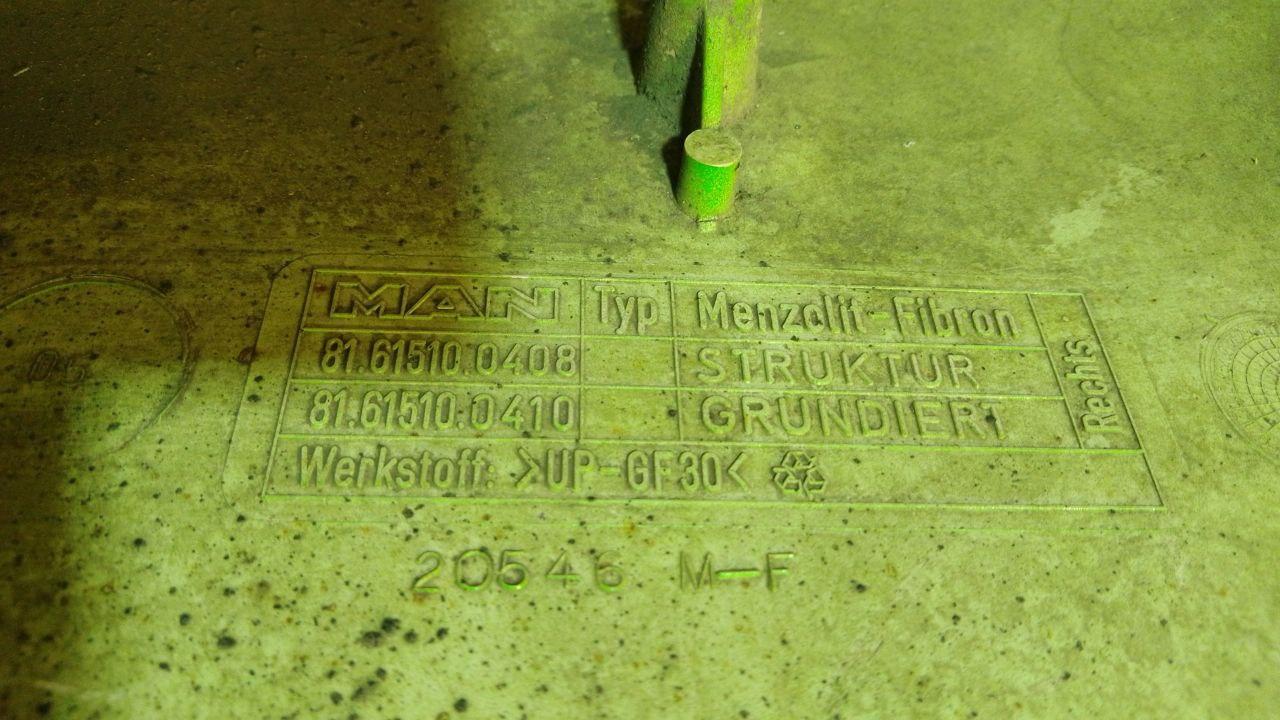 MAN Typ Menzolit-Fibron
81.61510.0408 STRUKTUR
81.61510.0410 GRUNDIERT
Rechts
Werkstoff: >UP-GF30<
20546 M-F